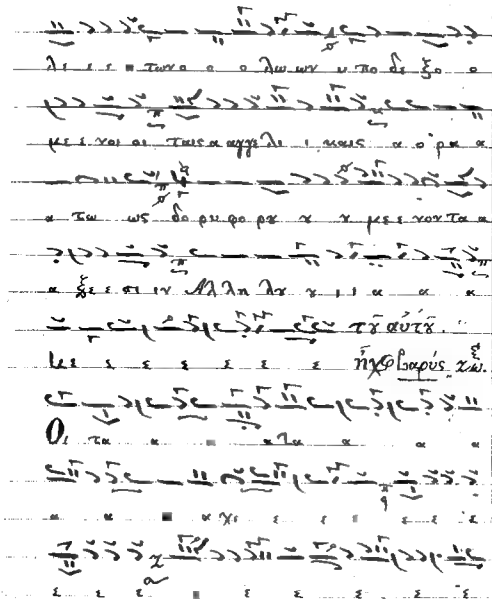 λε ε ε τωνο ο ο λωων υ πο δε ξο ο
με ε νοι οι ταισα αγγελι ι καις α ο ρα α
α τω ως δο ρυ φο ρȣ ȣ ȣ με ε νον τα α
α ξε ε σι ιν Αλ λη λȣ ȣ ι ι α α α
τȣ αὐτȣ.
Με ε ε ε ε ε ε ε ἦχος βαρύς ζω.
Οι τα α α τα α α α
α α α χε ε ε ε ε ε ε
ε ε ε ε ε ε ε ε ε